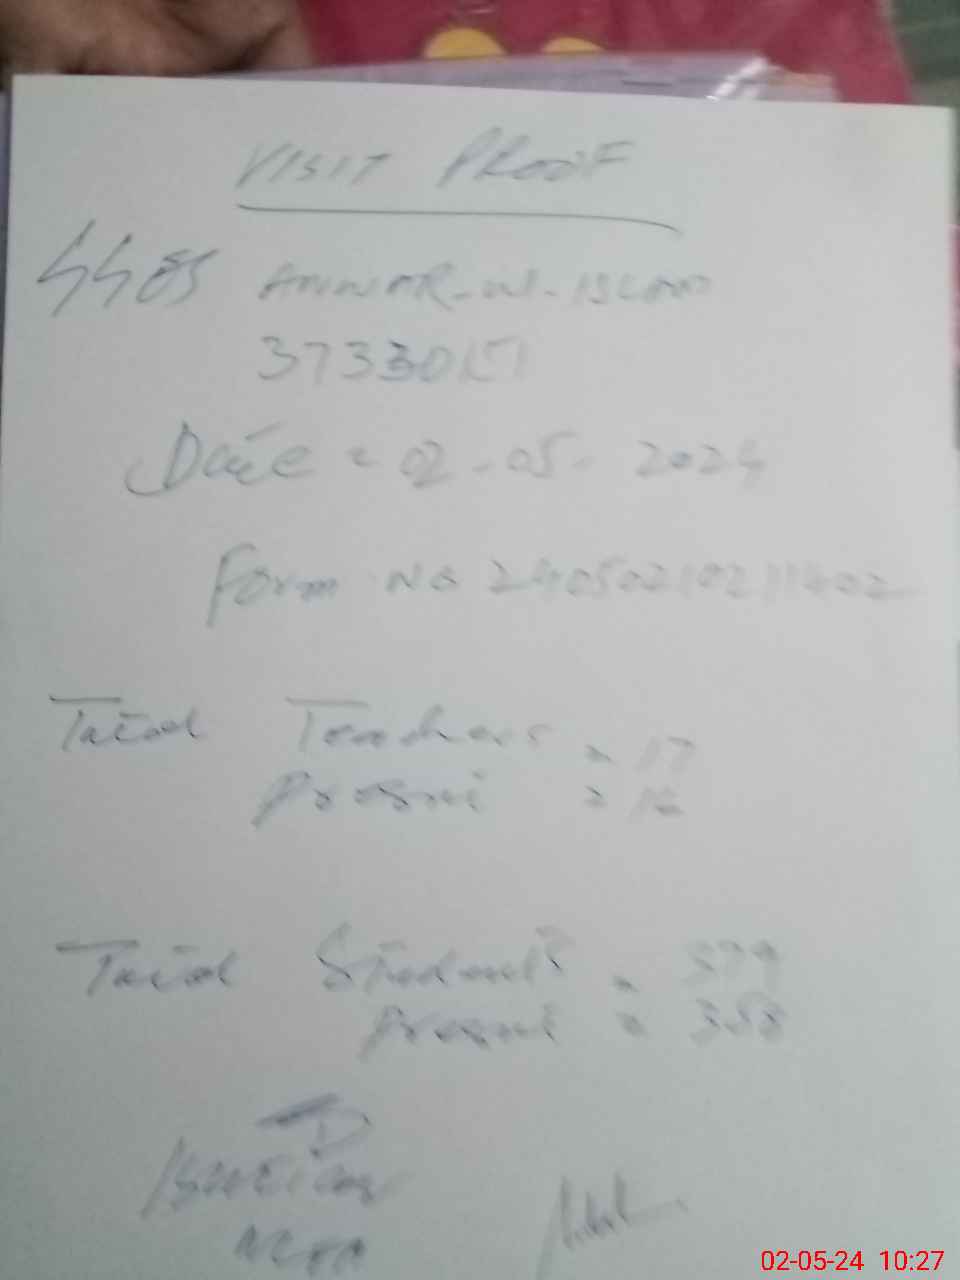 VISIT PROOF
ANWAR-UL-ISLAM
Date = 02-05-2024
Form No 24050210211402
Total Teachers = 17
Present = 16
Total Students = 379
Present = 358
02-05-24 10:27